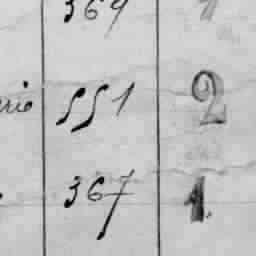 369 1
rio 551 2
367 1.